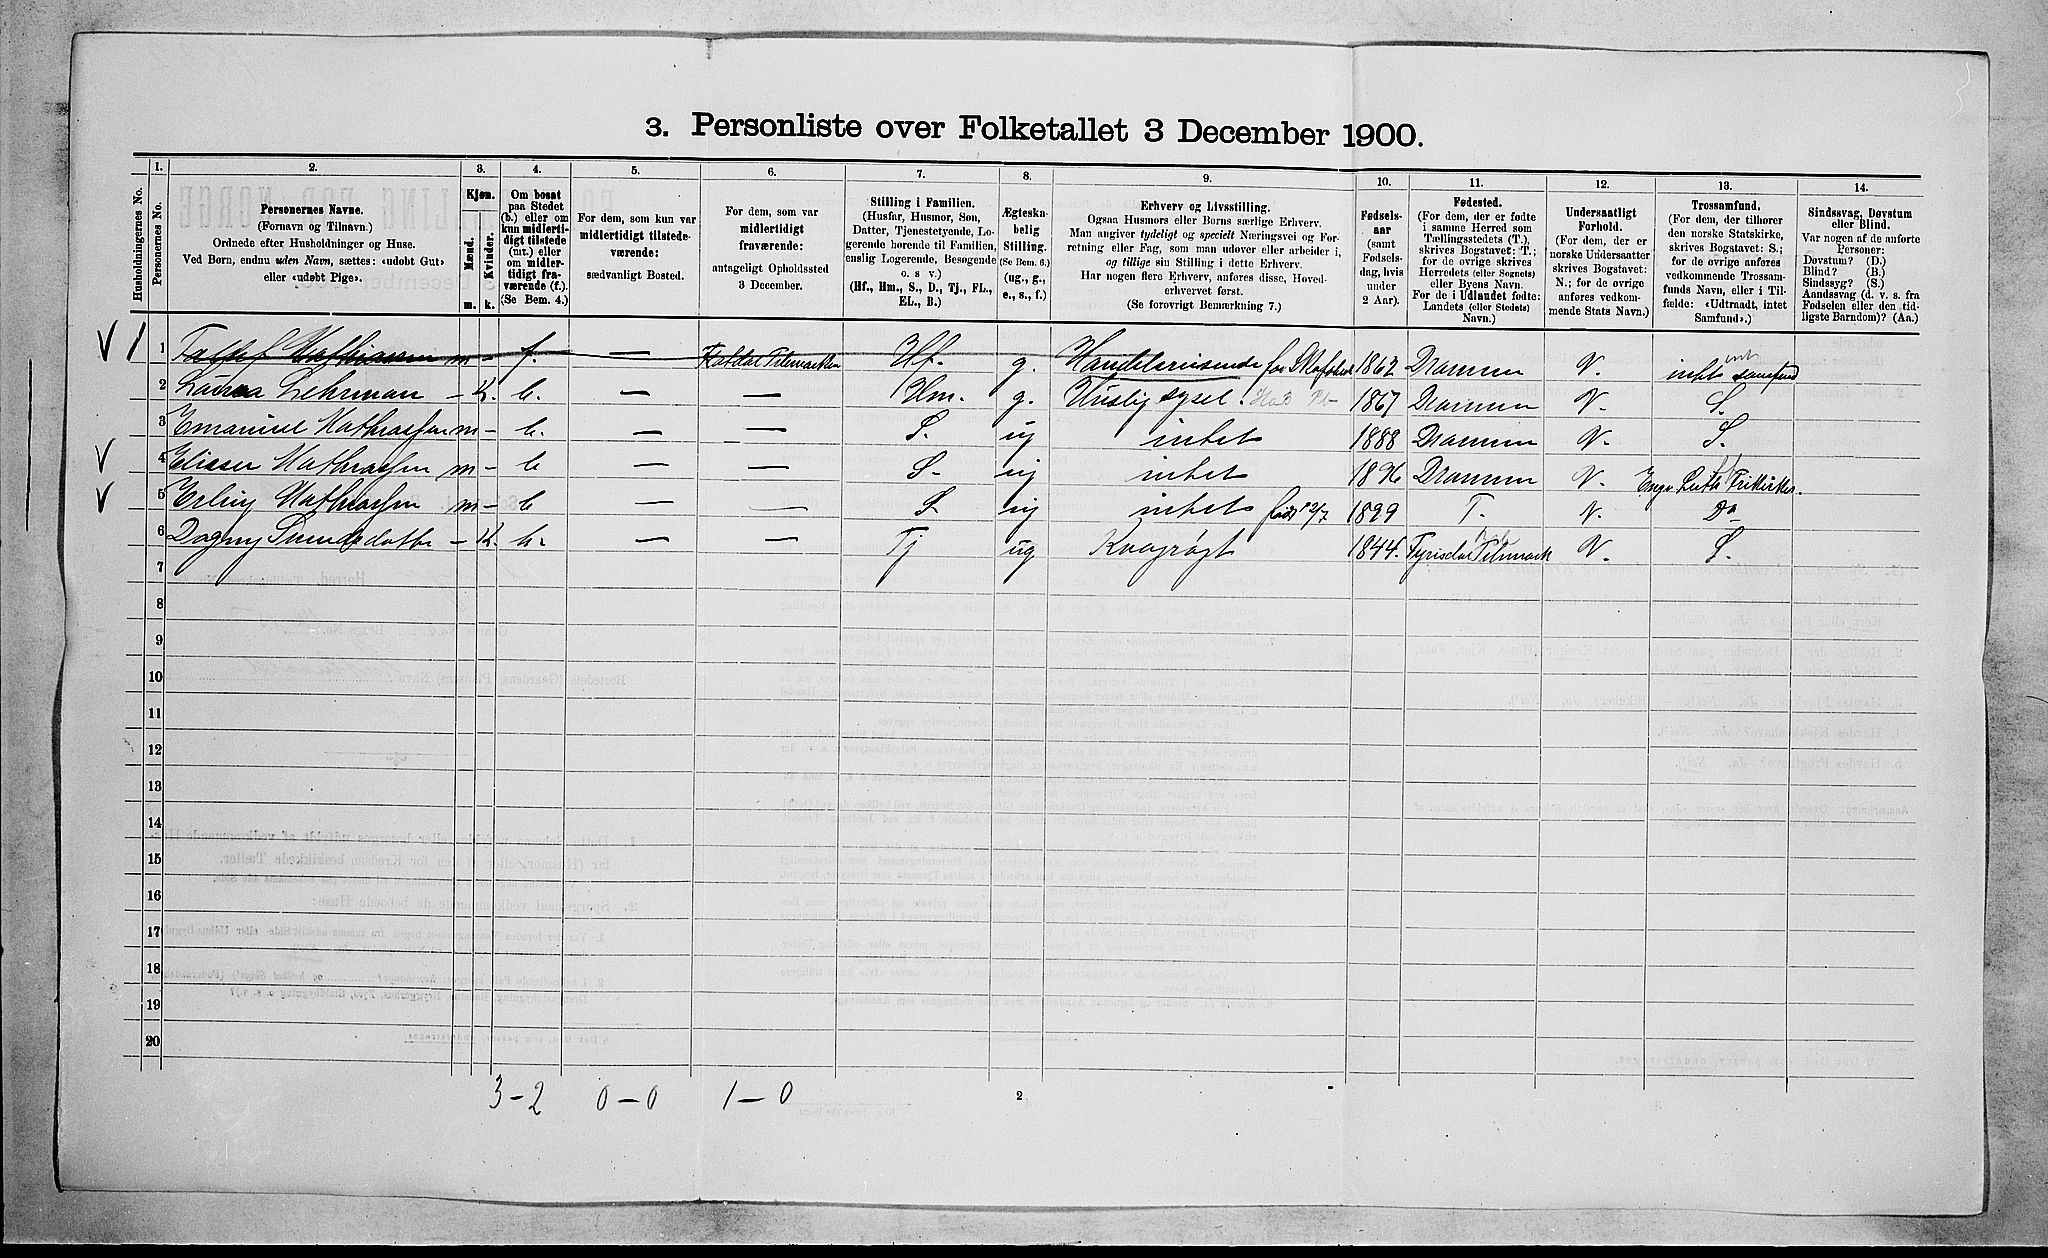 3. Personliste over Folketallet 3 December 1900.
Husholdningernes No.
1.
Personernes No.
2.
Personernes Navne.
(Fornavn og Tilnavn.)
Ordnede efter Husholdninger og Huse.
Ved Børn, endnu uden Navn, sættes: «udøbt Gut»
eller «udøbt Pige».
3.
Kjøn.
Mænd.
Kvinder.
m. k.
4.
Om bosat
paa Stedet
(b.) eller om
kun midlerti-
digt tilstede
(mt.) eller
om midler-
tidigt fra-
værende (f.).
(Se Bem. 4.)
5.
For dem, som kun var
midlertidigt tilstede-
værende:
sædvanligt Bosted.
6.
For dem, som var
midlertidigt
fraværende:
antageligt Opholdssted
3 December.
7.
Stilling i Familien.
(Husfar, Husmor, Søn,
Datter, Tjenestetyende, Lo-
gerende hørende til Familien,
enslig Logerende, Besøgende
o. s v.)
(Hf., Hm., S., D., Tj., FL.,
EL., B.)
8.
Ægteska-
belig
Stilling.
(Se Bem. 6.)
(ug., g.,
e., s., f.)
9.
Erhverv og Livsstilling.
Ogsaa Husmors eller Børns særlige Erhverv.
Man angiver tydeligt og specielt Næringsvei og For-
retning eller Fag, som man udover eller arbeider i,
og tillige sin Stilling i dette Erhverv.
Har nogen flere Erhverv, anføres disse, Hoved-
erhvervet først.
(Se forøvrigt Bemærkning 7.)
10.
Fødsels-
aar
(samt
Fødsels-
dag, hvis
under
2 Aar).
11.
Fødested.
(For dem, der er fødte
i samme Herred som
Tællingsstedets (T.),
skrives Bogstavet: T.;
for de øvrige skrives
Herredets (eller Sognets)
eller Byens Navn.
For de i Udlandet fødte:
Landets (eller Stedets)
Navn.)
12.
Undersaatligt
Forhold.
(For dem, der er
norske Undersaatter
skrives Bogstavet:
N.; for de øvrige
anføres vedkom-
mende Stats Navn.)
13.
Trossamfund.
(For dem, der tilhører
den norske Statskirke,
skrives Bogstavet: S.;
for de øvrige anføres
vedkommende Trossam-
funds Navn, eller i Til-
fælde: «Udtraadt, intet
Samfund».)
14.
Sindssvag, Døvstum
eller Blind.
Var nogen af de anførte
Personer:
Døvstum? (D.)
Blind? (B.)
Sindssyg? (S.)
Aandssvag (d. v. s. fra
Fødselen eller den tid-
ligste Barndom)? (Aa.)
1 m - f. — Hf. g. Handelsreisende for 1862 Drammen N.
2 Laura Lehrman - K. b. — — Hm. g. Huslig sysel. 1867 Drammen N. S.
3 Emanuel Mathiassen m - b. — — S. ug intet 1888 Drammen N. S.
4 Elisser Mathiassen m - b — — S. ug intet 1896 Drammen N.
5 Erling Mathiassen m - b — — S ug intet født 12/7 1899 T. N. Do
6 Dagny - K. b. — — Tj ug Kvægrøgt 1844. N. S.
7
8
9
10
11
12
13
14
15
16
17
18
19
20
3-2 0-0 1-0
2